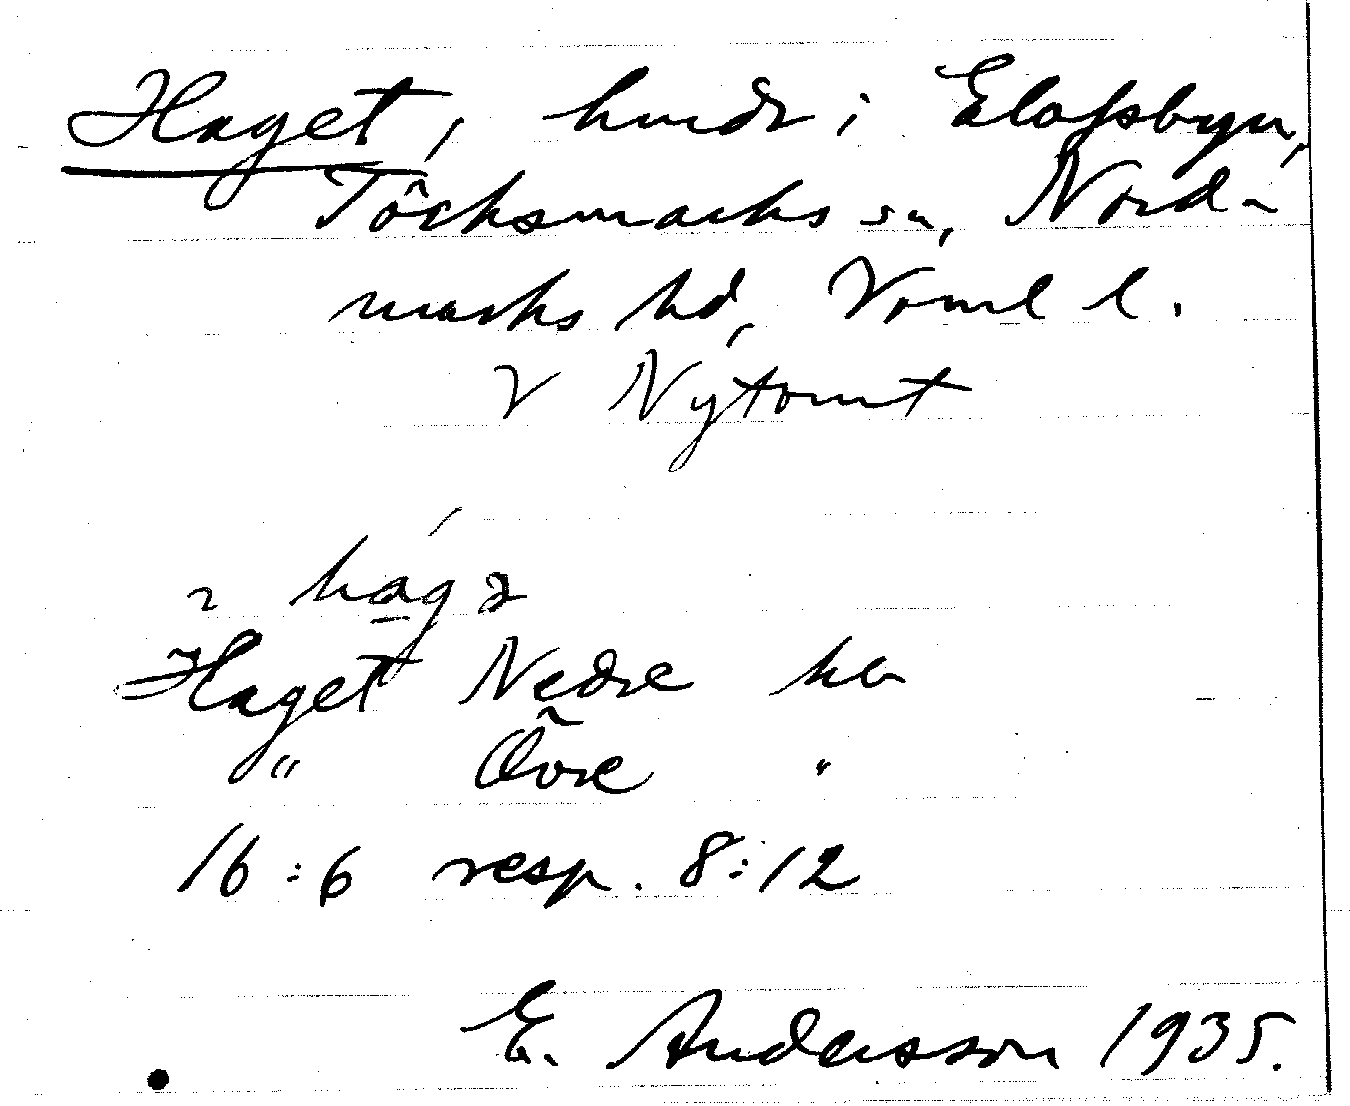 Haget, hmdr i Elofsbyn,
Töcksmarks sn, Nord-
marks hd, Vrml l.
V Nýtomt
2 hágə
Haget Nedre
" Övre "
16:6 resp. 8:12
E. Andersson 1935.